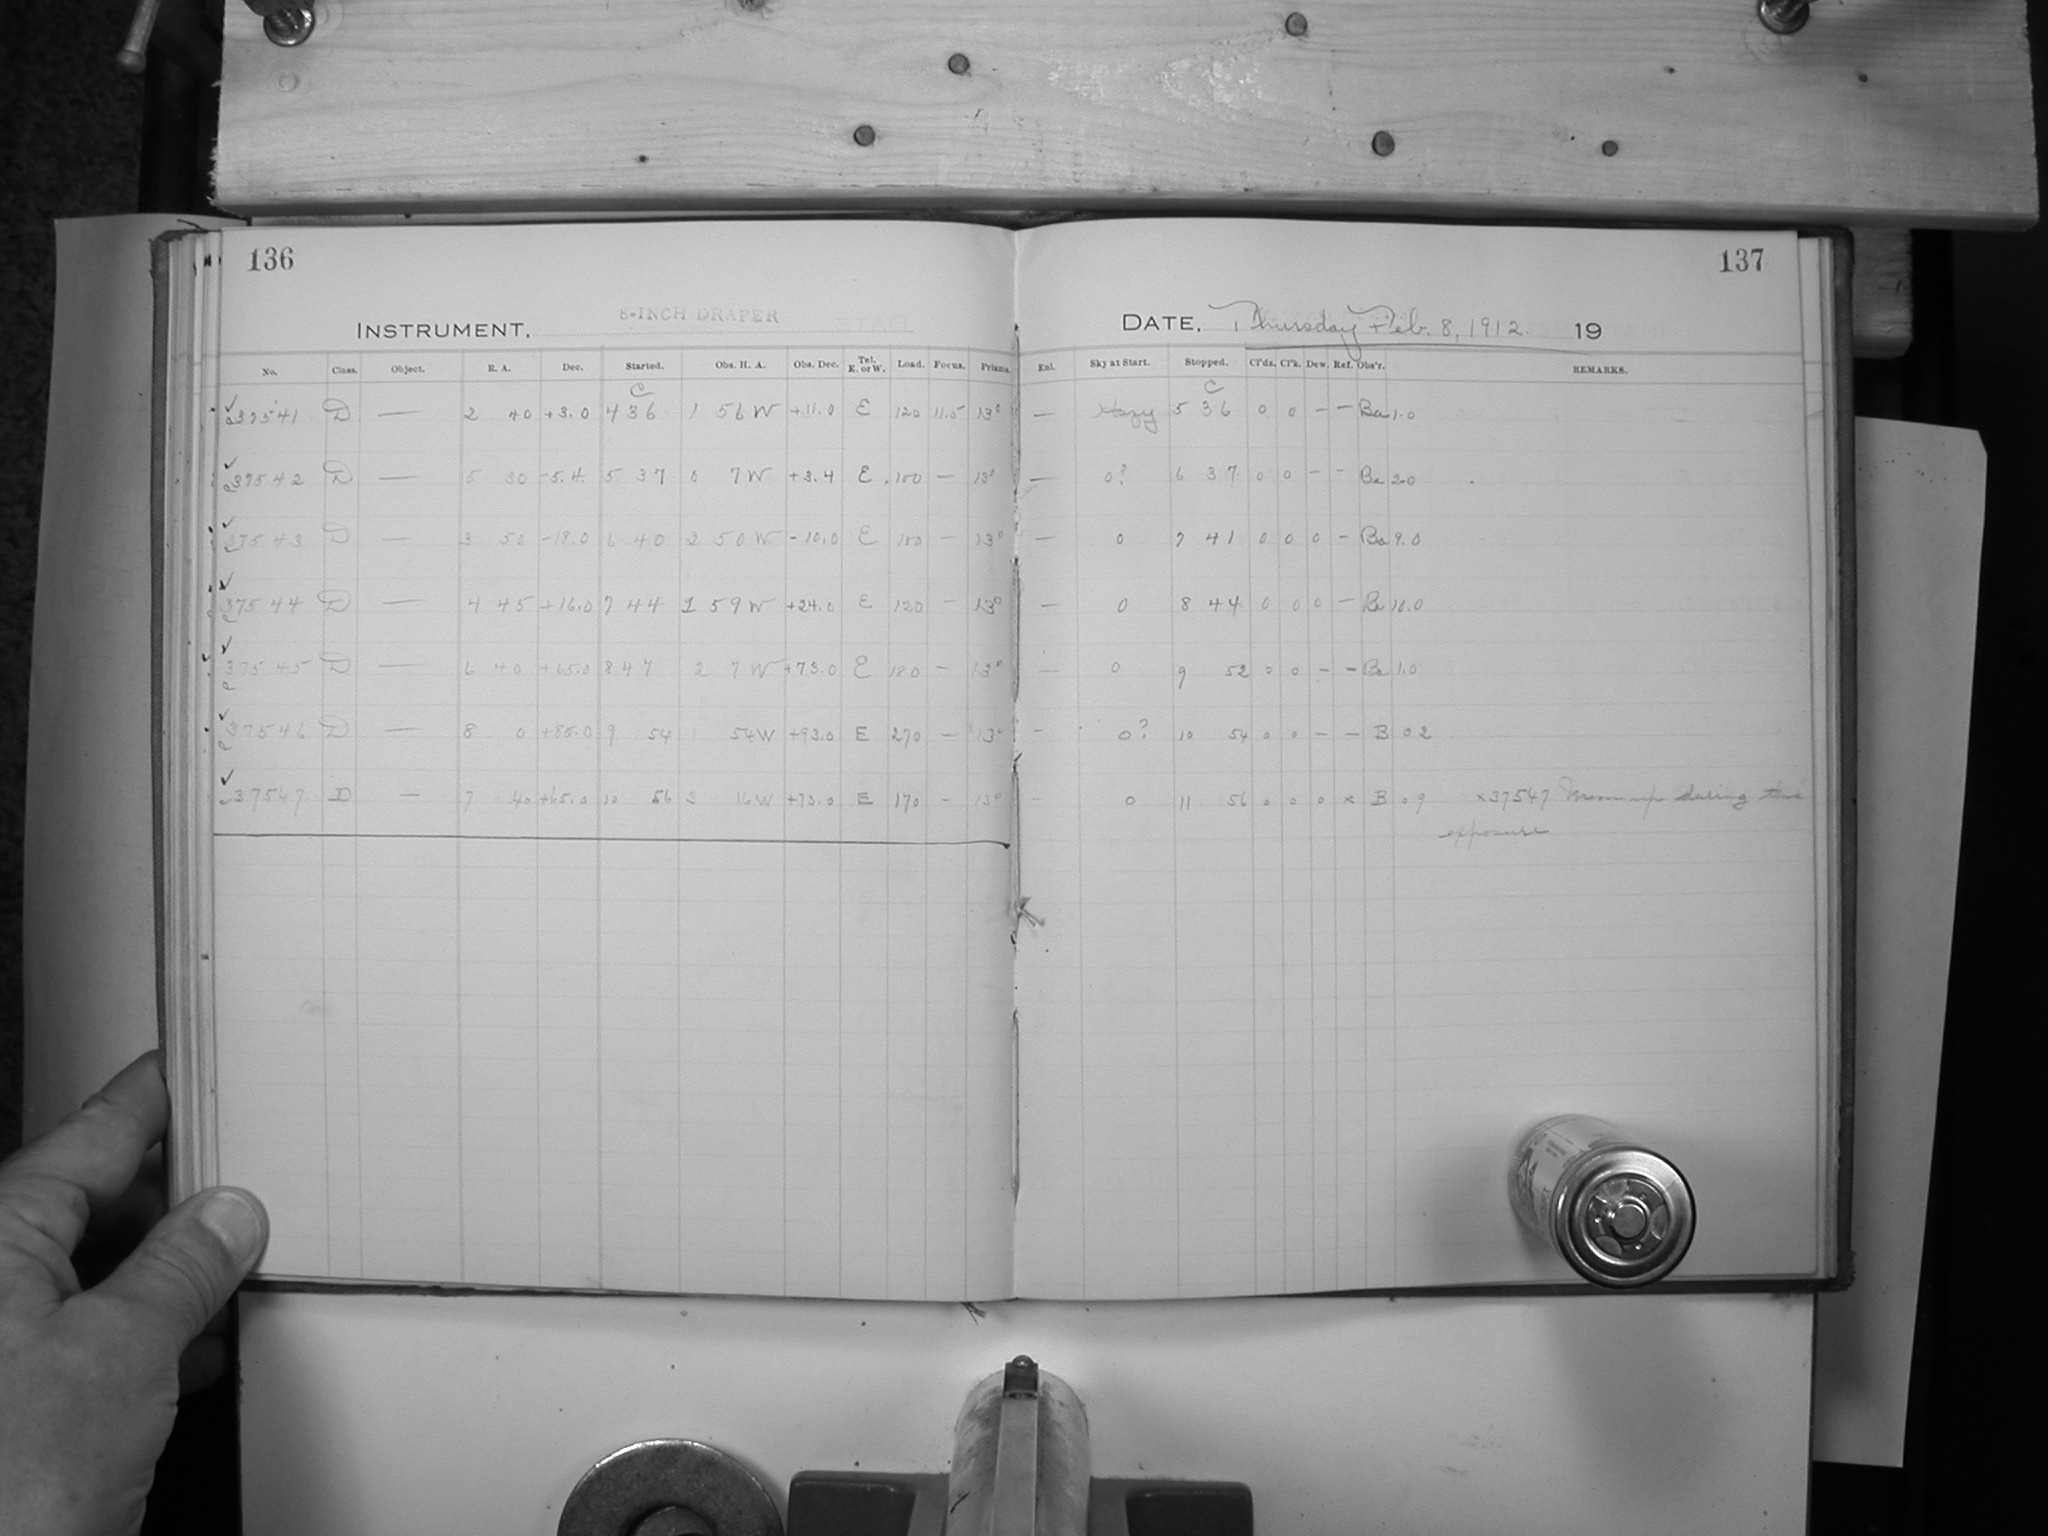 136
137
INSTRUMENT, 8-INCH DRAPER
DATE, Thursday Feb. 8, 1912. 19
No. Class. Object. R. A. Dec. Started. Obs. H. A. Obs. Dec. Tel. E. or W. Load. Focus. Prisms. Enl. Sky at Start. Stopped. Cl'ds. Cl'k. Dew. Ref. Obs'r. REMARKS.
C C
37541 D — 2 40 +3.0 4 36 1 56 W +11.0 E 120 11.5 13° — Hazy 5 36 0 0 – – Ba 1.0
37542 D — 5 30 -5.4 5 37 0 7 W +3.4 E 100 — 13° — 0? 6 37 0 0 – – Ba 2.0
37543 D — 3 50 -18.0 6 40 2 50 W -10.0 E 100 – 13° — 0 7 41 0 0 0 – Ba 9.0
37544 D — 4 45 +16.0 7 44 1 59 W +24.0 E 120 – 13° — 0 8 44 0 0 0 – Ba 10.0
37545 D — 6 40 +65.0 8 47 2 7 W +73.0 E 180 – 13° — 0 9 52 0 0 – – Ba 1.0
37546 D — 8 0 +85.0 9 54 1 54 W +93.0 E 270 – 13° – 0? 10 54 0 0 – – B 0 2
37547 D — 7 40 +65.0 10 56 3 16 W +73.0 E 170 – 13° – 0 11 56 0 0 0 x B 0 9 x37547 Moon up during this
exposure